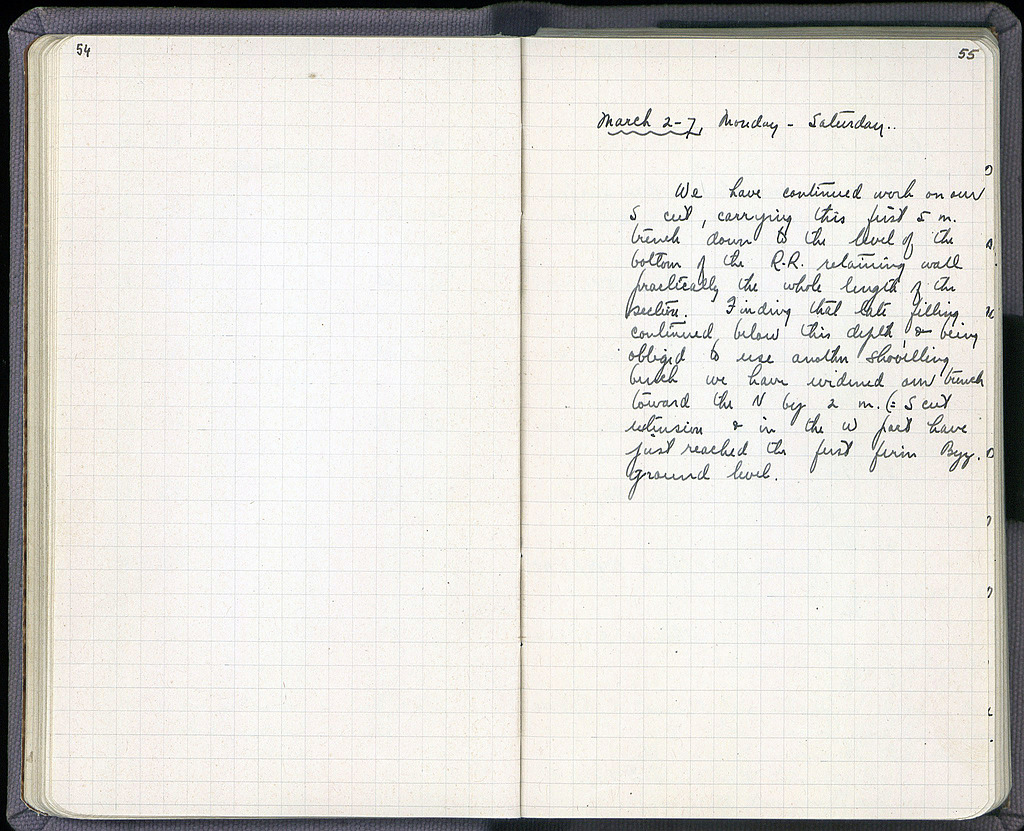 54
55
March 2-7, Monday - Saturday..
We have continued work on our
S cut, carrying this first 5 m.
trench down to the level of the
bottom of the R.R. retaining wall
practically the whole length of the
section. Finding that late filling
continued below this depth, & being
obliged to use another shovelling
bench we have widened our trench
toward the N by 2 m. (= S cut
extension & in the W part have
just reached the first firm Byz.
ground level.